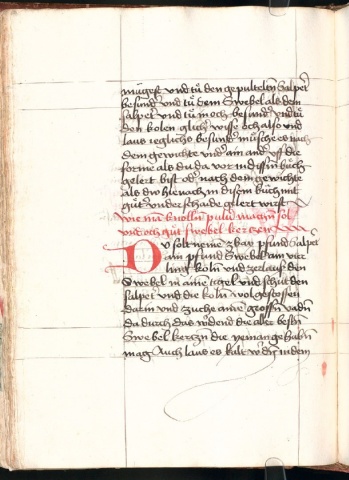 mügest vnd tů den gepulteten Salpet̄
besund̄ vnd tů dem Swebel als dem
salpet̄ vnd tů in och besund̄ vnd tů
den kolen glich̄ wise och also vnd
laus ieglichs besund̄ müsche es nach
dem gewichte vnd an and̄ vff die
forme als du da vor in dissem bůch
gelert bist od̄ nach dem gewichte
als du hie nach in disem bůch mit
gůt̄ vnderschaide gelert wirst
wie mā knollen puluer machen sol
vnd och gůt swebel kerzen
Du solt neme zway pfund Salpet̄
ain pfund Swebel ain vier
ling koln vnd zerlauß den
Swebel in aine tigel vnd schüt den
salpet̄ vnd die koln wol gestossen
darin vnd zuche aine grossen vadē
da durch das werdend die aller besten
Swebel kerczen die yeman gehabē
mag Auch laus es kalt werdē in dem